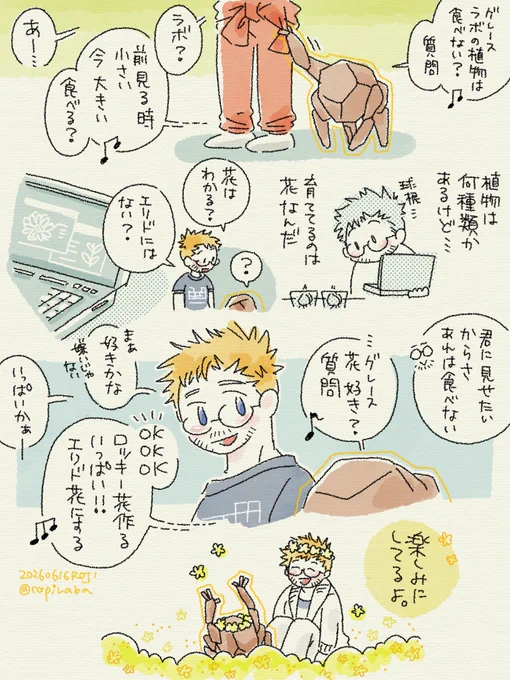 グレース
ラボの植物は
食べない？
質問
ラボ？
前見る時
小さい
今大きい
食べる？
あー…
植物は
何種類か
あるけど…
球根…
育ててるのは
花なんだ
花は
わかる？
？
エリドには
ない？
君に見せたい
からさ
あれは食べない
グレース
花好き？
質問
まぁ
好きかな
嫌いじゃ
ない
OK
OK
OK
ロッキー花作る
いっぱい!!
エリド花にする
いっぱいかぁー
楽しみに
してるよ。
20260616ROJI
@rapiraba